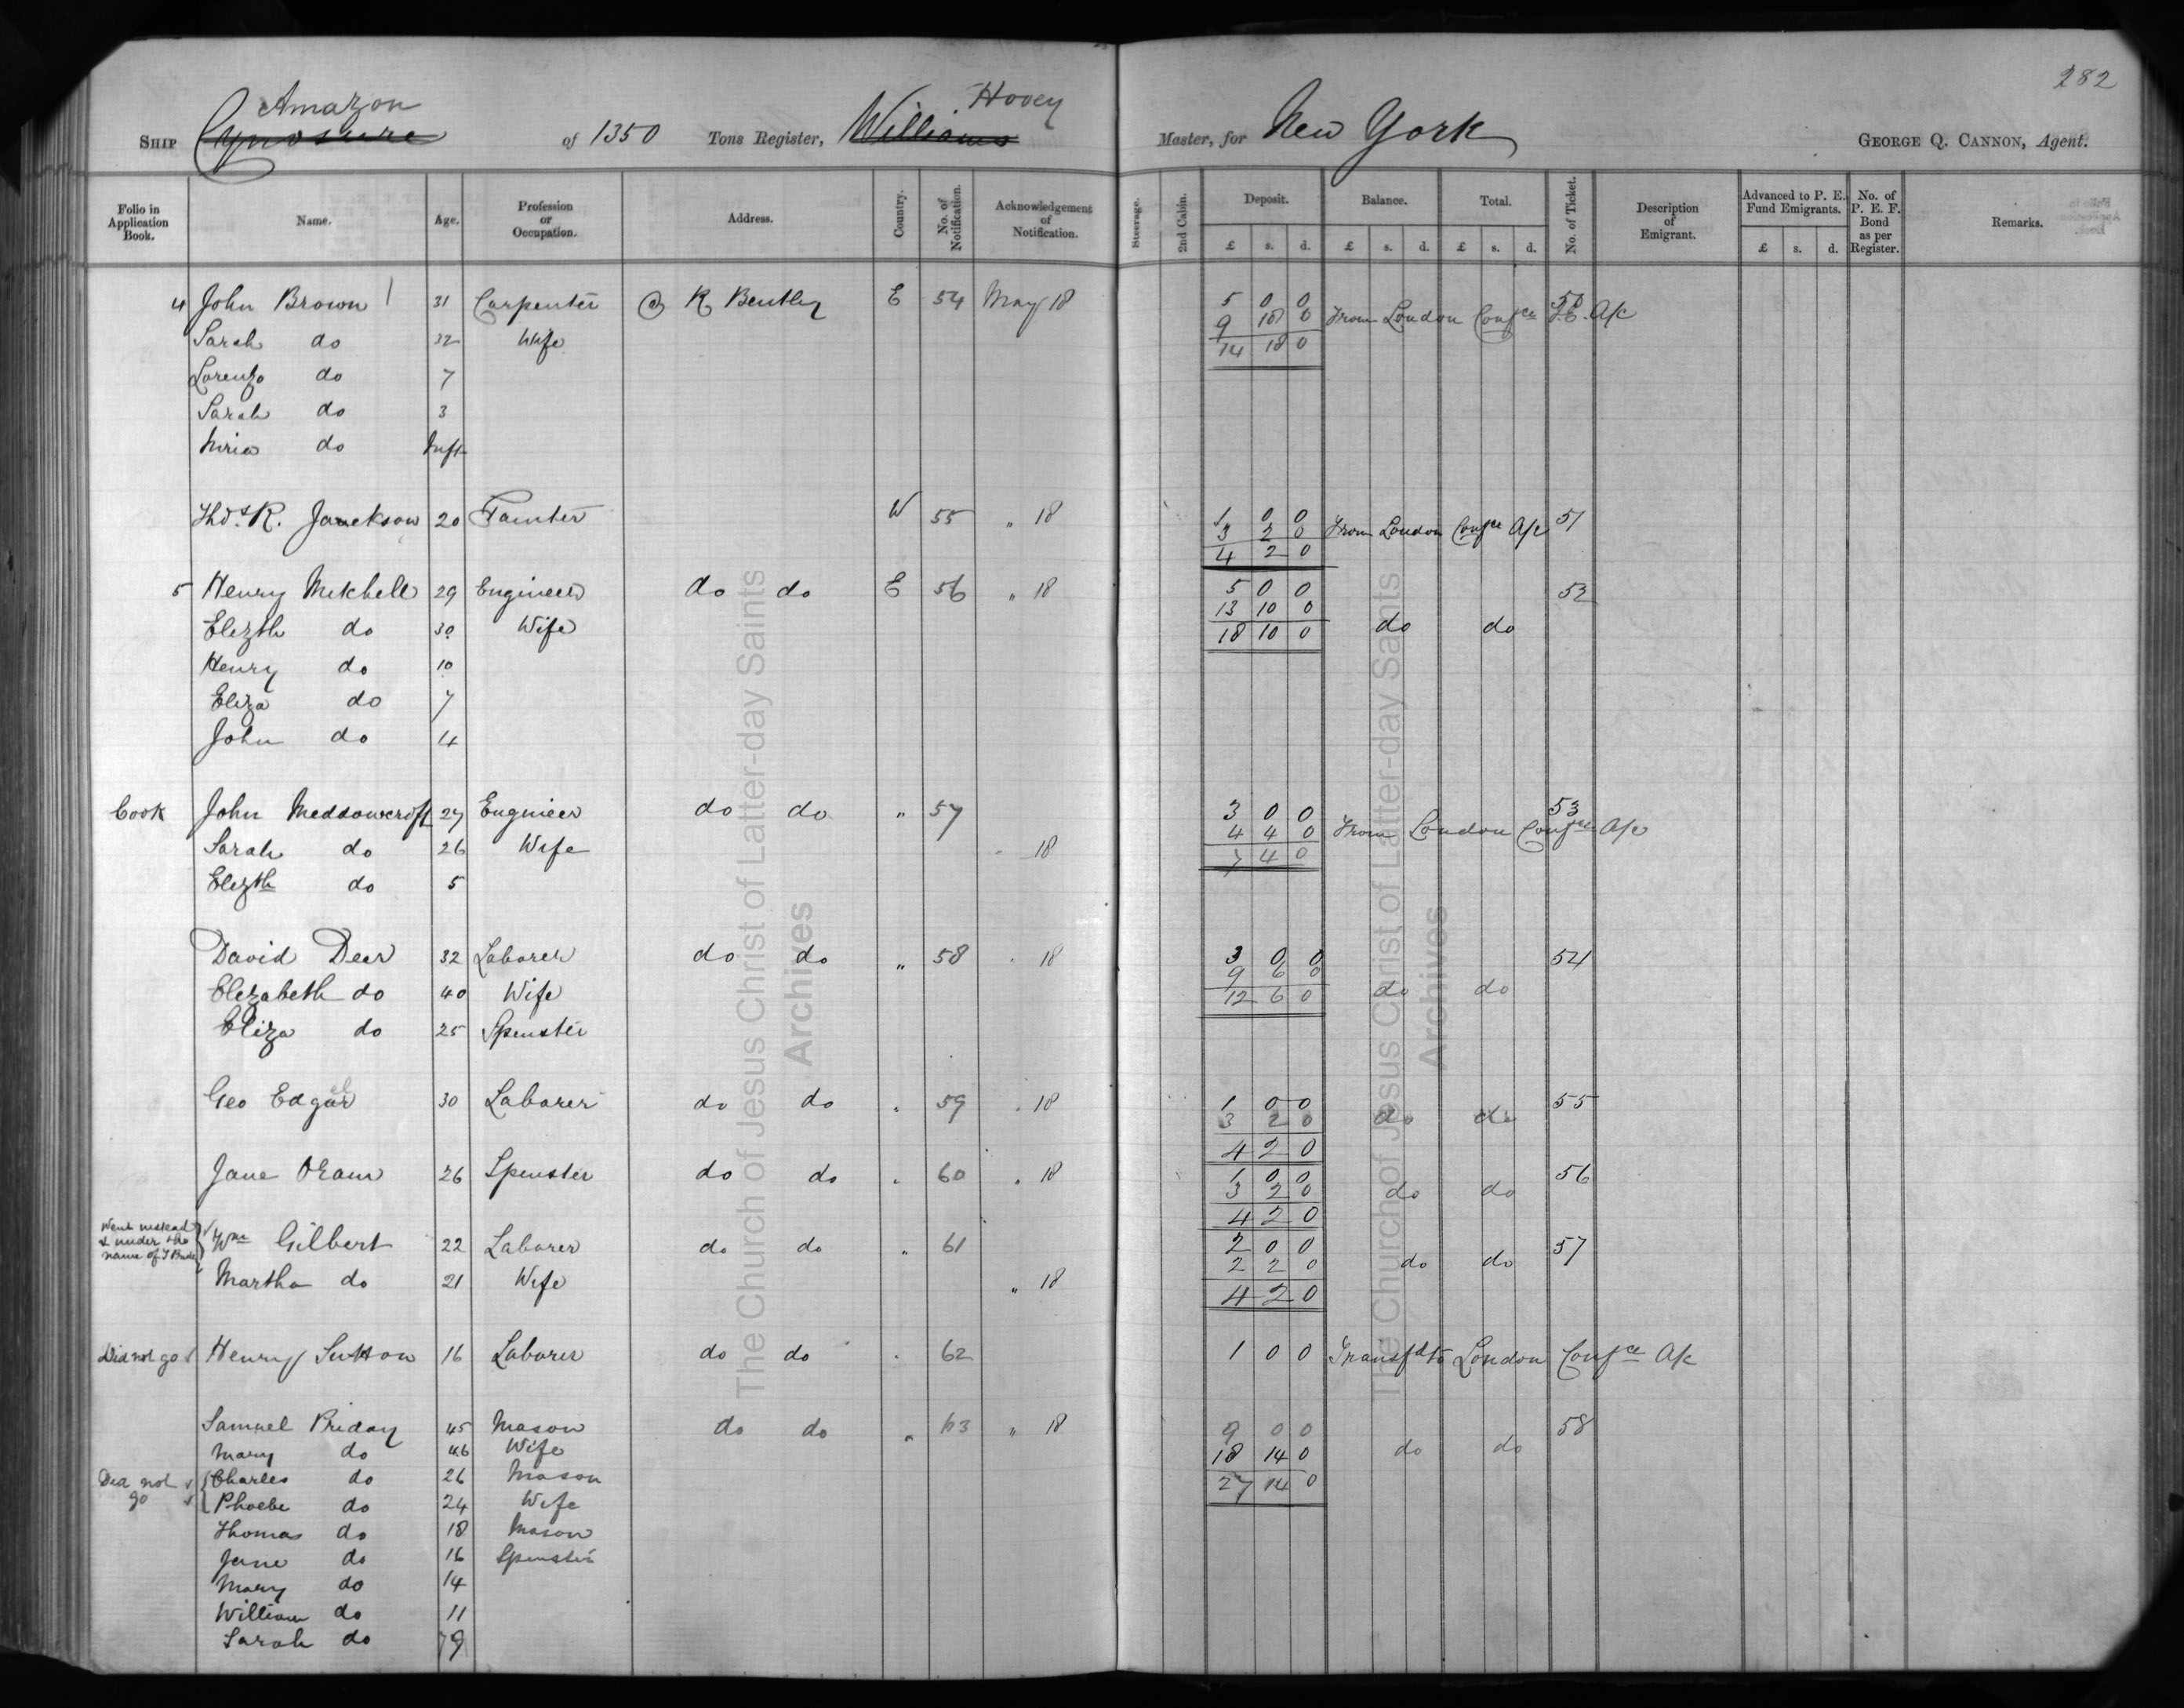 282
Amazon Hovey
SHIP Cynosure of 1350 Tons Register, Williams Master, for New York GEORGE Q. CANNON, Agent.
Folio in Application Book. Name. Age. Profession or Occupation. Address. Country. No. of Notification. Acknowledgement of Notification. Steerage. 2nd Cabin. Deposit. Balance. Total. No. of Ticket. Description of Emigrant. Advanced to P. E. Fund Emigrants. No. of P. E. F. Bond as per Register. Remarks.
£ s. d. £ s. d. £ s. d. £ s. d.
4 John Brown 31 Carpenter R Bentley E 54 May 18 5 0 0 50
9 18 0 From London Confce A/c
Sarah do 32 Wife 14 18 0
Lorenzo do 7
Sarah do 3
do Inft
Thos R. Jackson 20 W 55 " 18 1 0 0 51
3 2 0 From London Confce A/c
4 2 0
5 Henry Mitchell 29 Engineer do do E 56 " 18 5 0 0 52
13 10 0
Elizth do 30 Wife 18 10 0 do do
Henry do 10
Eliza do 7
John do 4
Cook John Meddowcroft 27 Engineer do do " 57 3 0 0 53
4 4 0 From London Confce A/c
Sarah do 26 Wife " 18 7 4 0
Elizth do 5
David Deer 32 Laborer do do " 58 " 18 3 0 0 54
9 6 0
Elizabeth do 40 Wife 12 6 0 do do
Eliza do 25 Spinster
Geo Edgar 30 Laborer do do " 59 " 18 1 0 0 55
3 2 0 do do
4 2 0
Jane Oram 26 Spinster do do " 60 " 18 1 0 0 56
3 2 0 do do
4 2 0
Went instead & under the name of
Wm Gilbert 22 Laborer do do " 61 2 0 0 57
2 2 0 do do
Martha do 21 Wife " 18 4 2 0
Did not go Henry Sutton 16 Laborer do do " 62 1 0 0 Transfd to London Confce A/c
Samuel Priday 45 Mason do do " 63 " 18 9 0 0 58
Mary do 46 Wife 18 14 0 do do
Did not go Charles do 26 Mason 27 14 0
Phoebe do 24 Wife
Thomas do 18 Mason
Jane do 16 Spinster
Mary do 14
William do 11
Sarah do 9
The Church of Jesus Christ of Latter-day Saints
Archives
The Church of Jesus Christ of Latter-day Saints
Archives